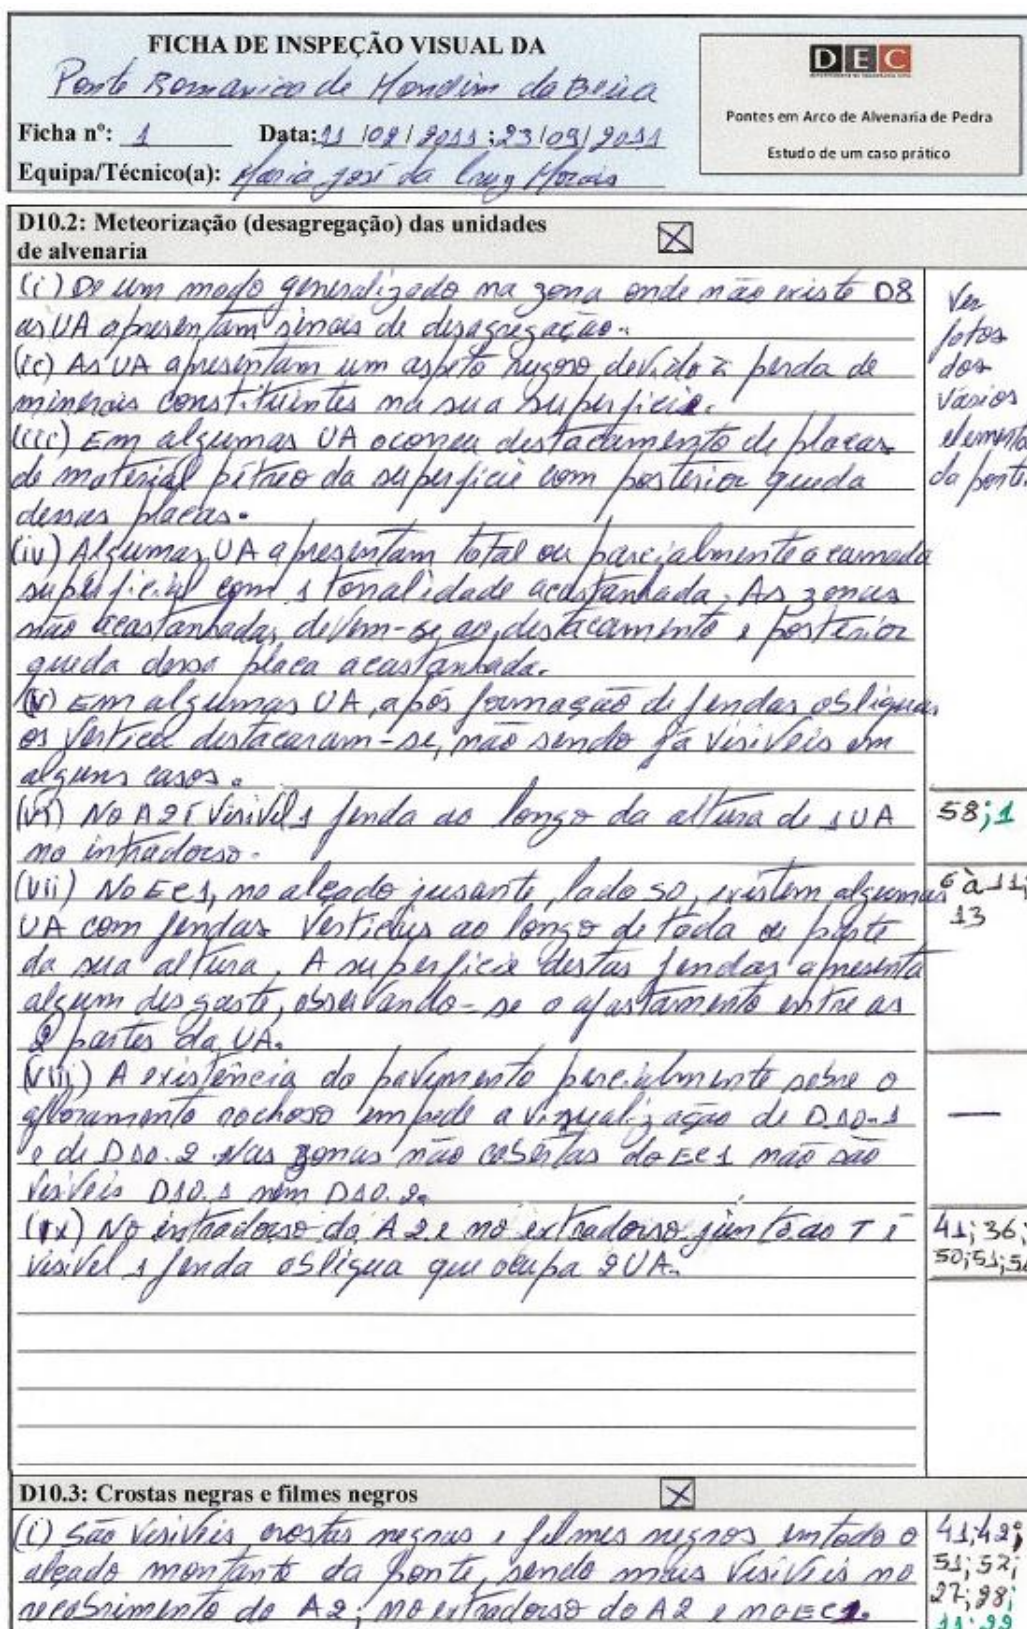 FICHA DE INSPEÇÃO VISUAL DA
Ponte Românica de Mondim da Beira
Ficha nº: 1 Data: 11/02/2011; 23/09/2011
Equipa/Técnico(a): Maria José da Cruz Morais
DEC
Pontes em Arco de Alvenaria de Pedra
Estudo de um caso prático
D10.2: Meteorização (desagregação) das unidades
de alvenaria
(i) De um modo generalizado na zona onde não existe D8
as UA apresentam sinais de desagregação.
(ii) As UA apresentam um aspeto rugoso devido à perda de
minerais constituintes na sua superfície.
(iii) Em algumas UA ocorreu destacamento de placas
de material pétreo da superfície com posterior queda
dessas placas.
(iv) Algumas UA apresentam total ou parcialmente a camada
superficial com 1 tonalidade acastanhada. As zonas
não acastanhadas devem-se ao destacamento e posterior
queda dessa placa acastanhada.
(v) Em algumas UA, após formação de fendas oblíquas,
os vértices destacaram-se, não sendo já visíveis em
alguns casos.
Ver
fotos
dos
vários
elementos
da ponte.
(vi) No A2 é visível 1 fenda ao longo da altura de 1 UA
no intradorso.
58; 1
(vii) No EC1, no alçado jusante, lado SO, existem algumas
UA com fendas verticais ao longo de toda ou parte
da sua altura. A superfície destas fendas apresenta
algum desgaste, observando-se o afastamento entre as
2 partes da UA.
6 à 11;
13
(viii) A existência do pavimento parcialmente sobre o
afloramento rochoso impede a visualização de D10.1
e de D10.2. Nas zonas não cobertas do EC1 não são
visíveis D10.1 nem D10.2.
—
(ix) No intradorso do A2 e no extradorso junto ao T é
visível 1 fenda oblíqua que ocupa 2 UA.
41; 36;
50; 51;
D10.3: Crostas negras e filmes negros
(i) São visíveis crostas negras e filmes negros em todo o
alçado montante da ponte, sendo mais visíveis no
recobrimento do A2; no extradorso do A2 e no EC1.
41; 42;
51; 52;
27; 28;
11; 22